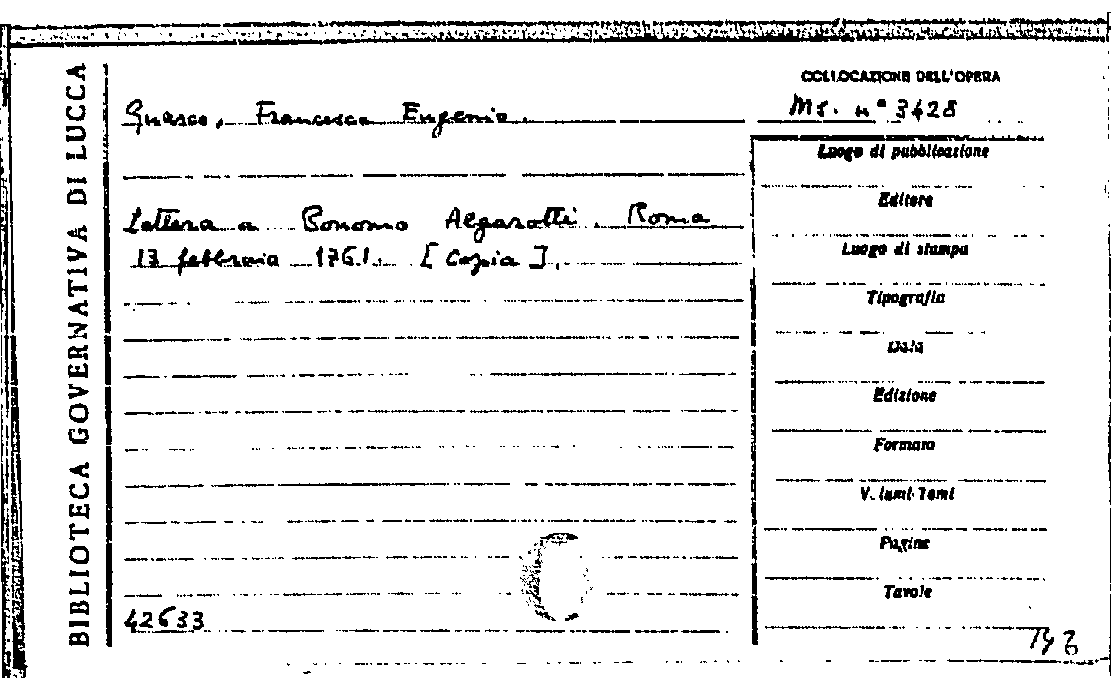 BIBLIOTECA GOVERNATIVA DI LUCCA
COLLOCAZIONE DELL'OPERA
Ms. n° 3428
Guasco, Francesco Eugenio.
Luogo di pubblicazione
Editore
Lettera a Bonomo Algarotti. Roma
13 febbraio 1761. [Copia].
Luogo di stampa
Tipografia
Data
Edizione
Formato
Volumi-Tomi
Pagine
Tavole
42633